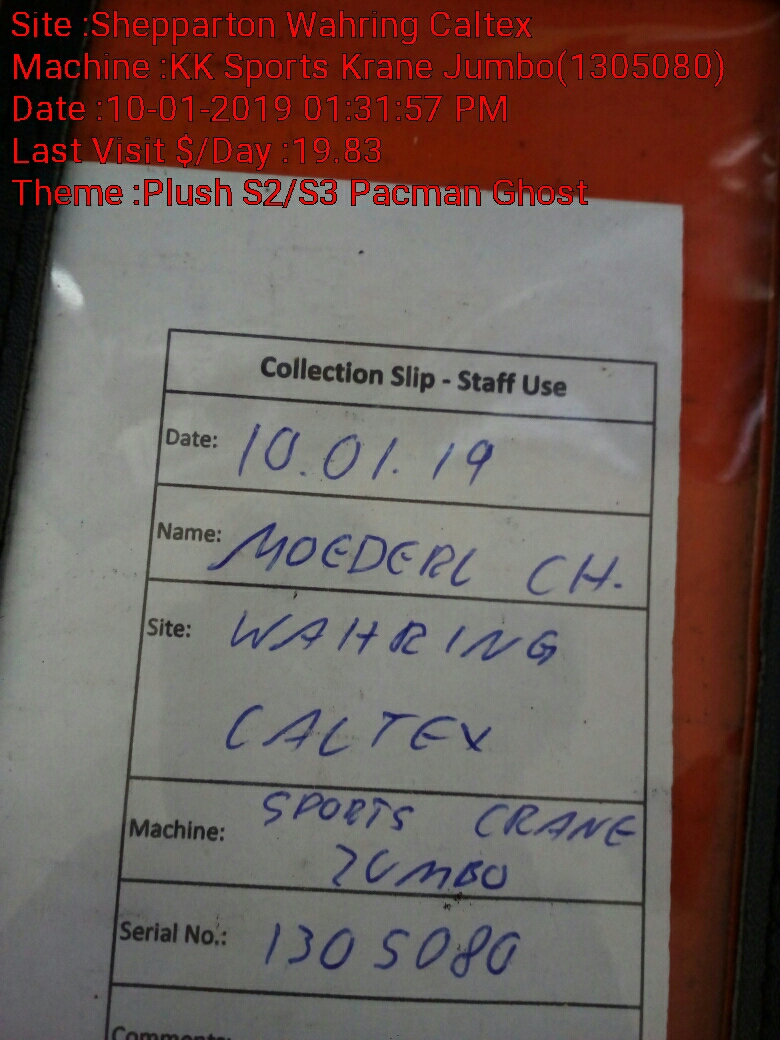 Site :Shepparton Wahring Caltex
Machine :KK Sports Krane Jumbo(1305080)
Date :10-01-2019 01:31:57 PM
Last Visit $/Day :19.83
Theme :Plush S2/S3 Pacman Ghost
Collection Slip - Staff Use
Date: 10.01.19
Name: MOEDERL CH.
Site: WAHRING
CALTEX
Machine: SPORTS CRANE
JUMBO
Serial No.: 1305080
Comments: